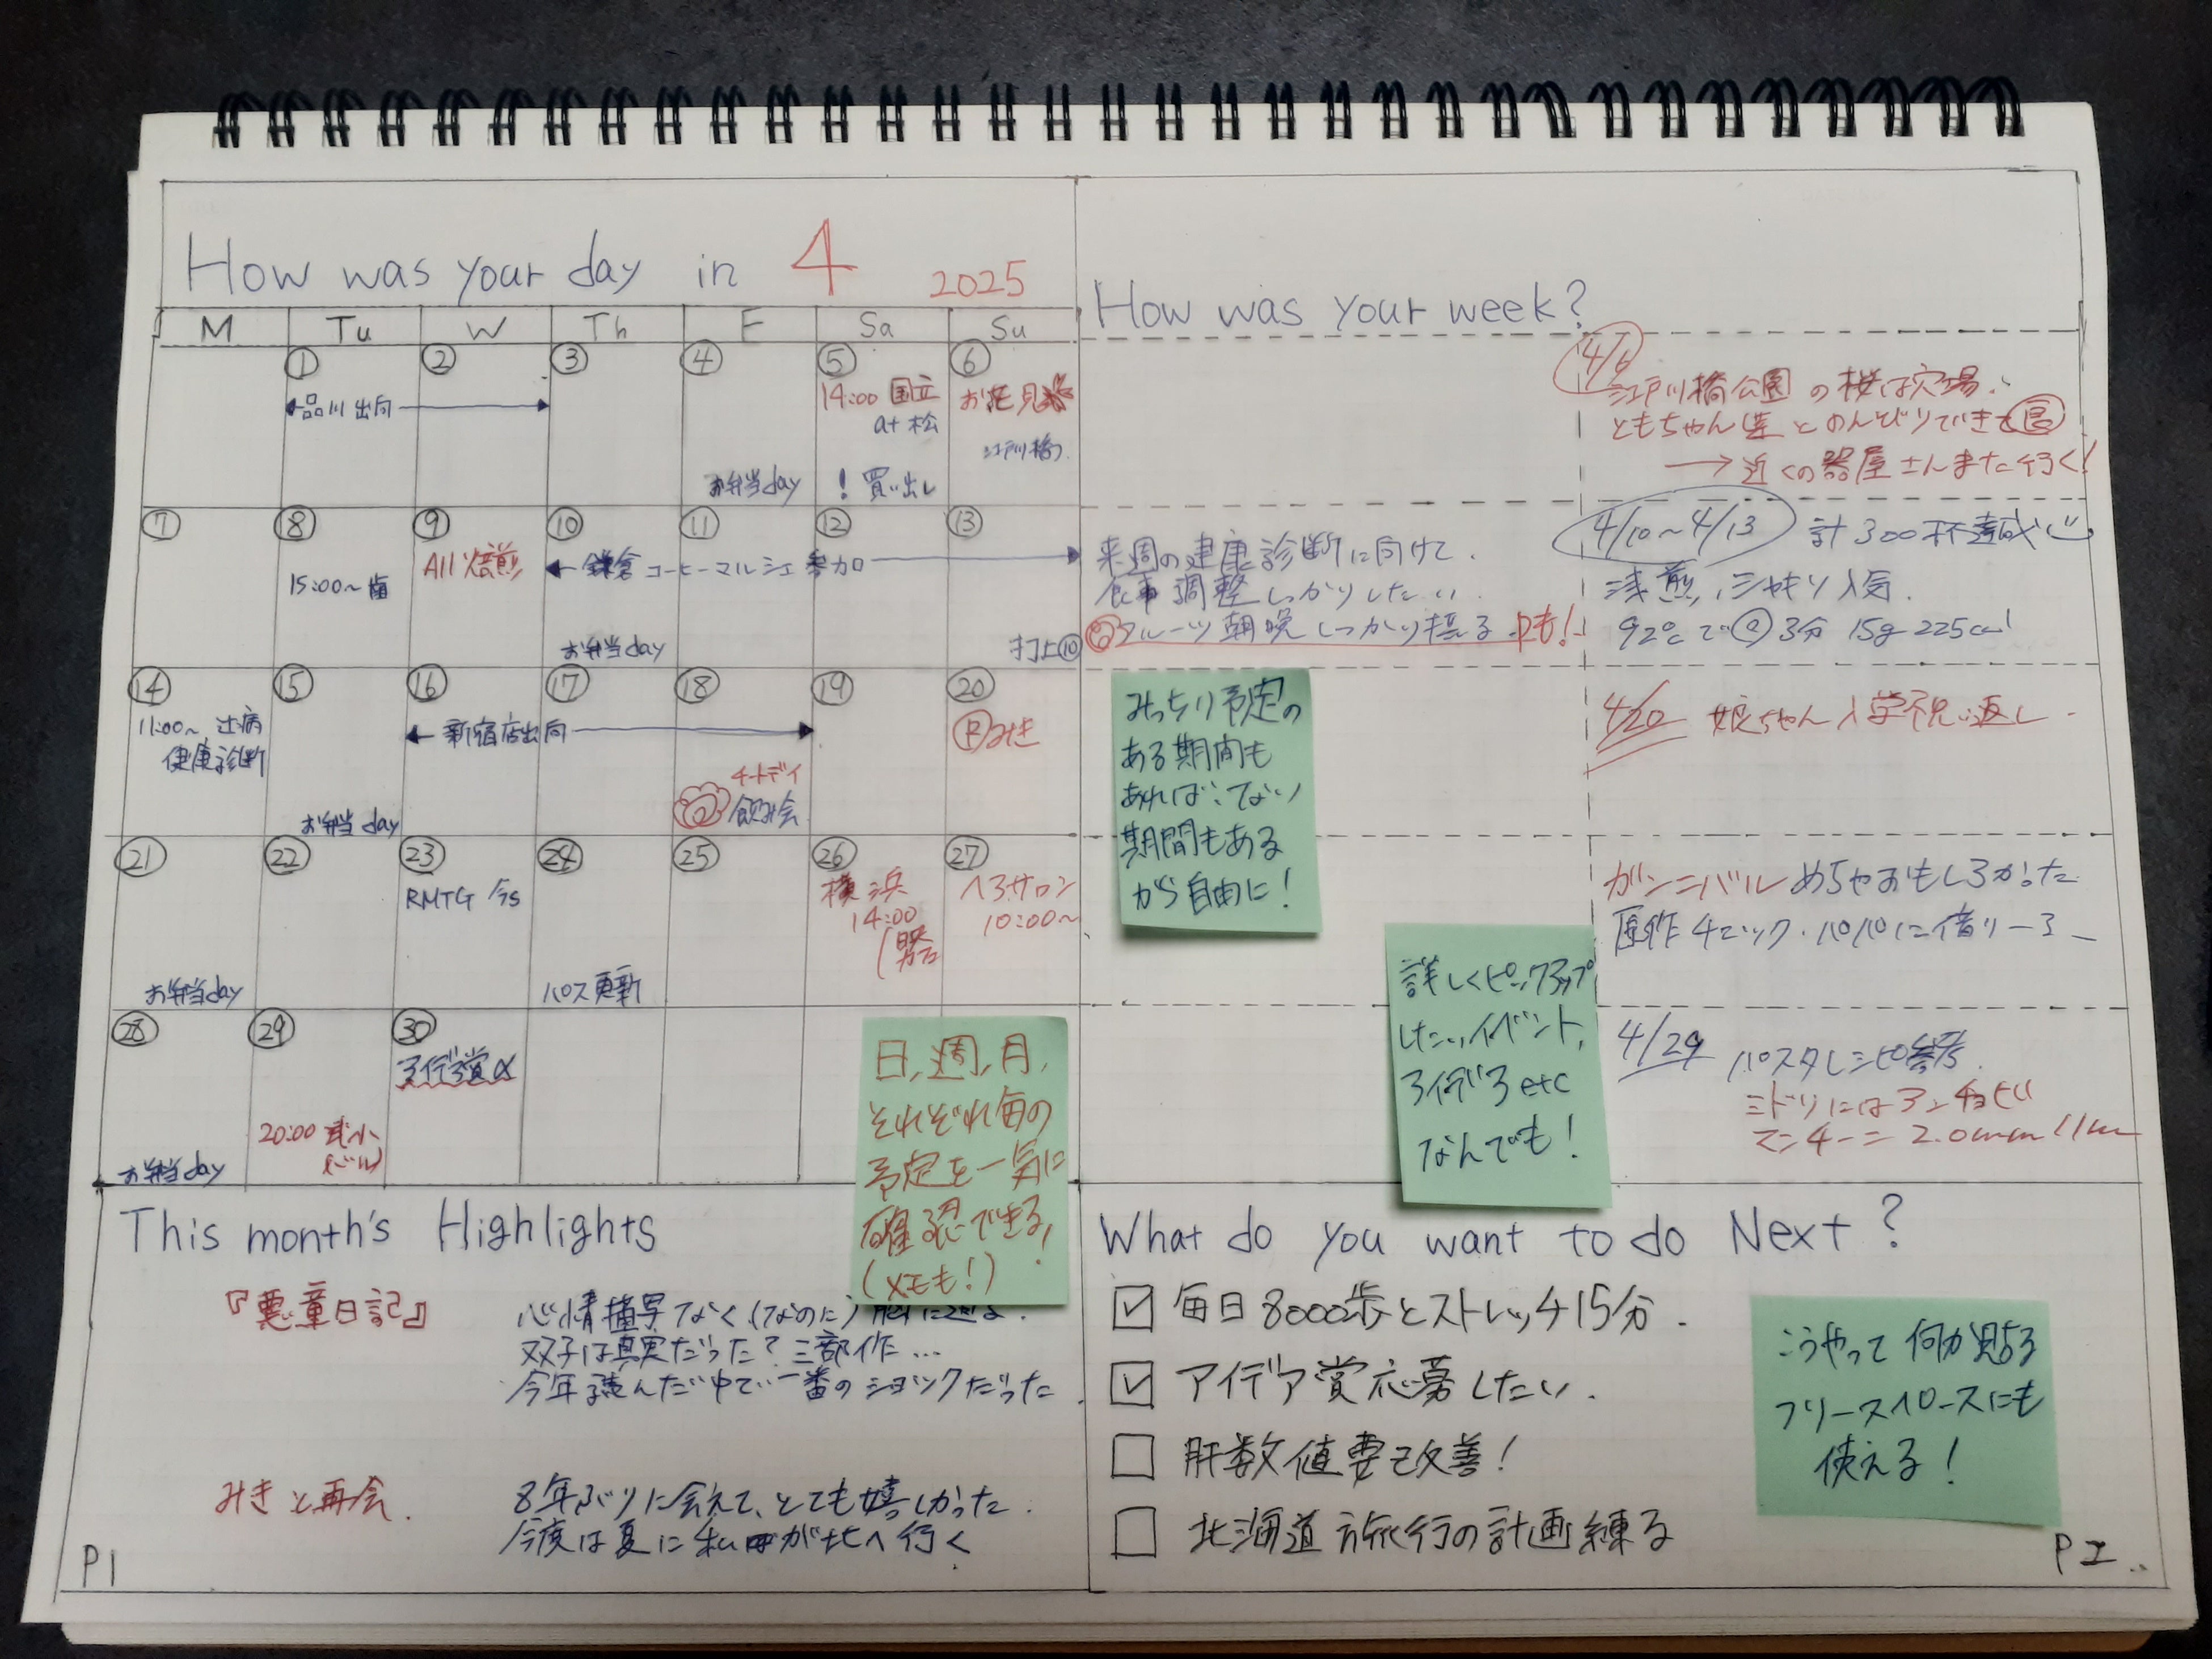 How was your day in 4 2025
M Tu W Th F Sa Su
① ② ③ ④ ⑤ ⑥
品川出向
14:00 国立
at 松
！買い出し
お花見
江戸川橋
お弁当day
⑦ ⑧ ⑨ ⑩ ⑪ ⑫ ⑬
15:00～歯
All 焙煎
鎌倉コーヒーマルシェ参加
お弁当day
打上⑩
⑭ ⑮ ⑯ ⑰ ⑱ ⑲ ⑳
11:00～辻病
健康診断
新宿店出向
Ⓡみき
チートデイ
飲み会
お弁当day
㉑ ㉒ ㉓ ㉔ ㉕ ㉖ ㉗
RMTG
横浜
14:00
ヘアサロン
10:00～
お弁当day
パス更新
㉘ ㉙ ㉚
アイデア賞〆
20:00 武小
お弁当day
日,週,月,
それぞれ毎の
予定を一気に
確認できる!
(メモも!)
How was your week?
4/6
江戸川橋公園の桜は穴場.
ともちゃん達とのんびりできて
→近くの器屋さんまた行く!
来週の健康診断に向けて.
食事調整しっかりしたい.
フルーツ朝晩しっかり摂る
4/10～4/13 計300杯達成
浅煎, シャキリ人気.
92℃で 3分 15g 225cc
みっちり予定の
ある期間も
あれば、ない
期間もある
から自由に!
4/20 娘ちゃん入学祝い返し
詳しくピックアップ
したいイベント,
アイデア etc
なんでも!
ガンニバル めちゃおもしろかった
原作チェック・パパに借りーる
4/29 パスタレシピ参考.
ミドリにはアンチョビ
マンチーニ 2.0mm 11m
This month's Highlights
『悪童日記』
心情描写なく,(なのに)
双子は真実だった？三部作…
今年読んだ中で一番のショックだった
みきと再会.
8年ぶりに会えて、とても嬉しかった.
今度は夏に私が北へ行く
P1
What do you want to do Next?
毎日8000歩とストレッチ15分.
アイデア賞応募したい.
肝数値要改善!
北海道旅行の計画練る
こうやって何か貼る
フリースペースにも
使える!
P2